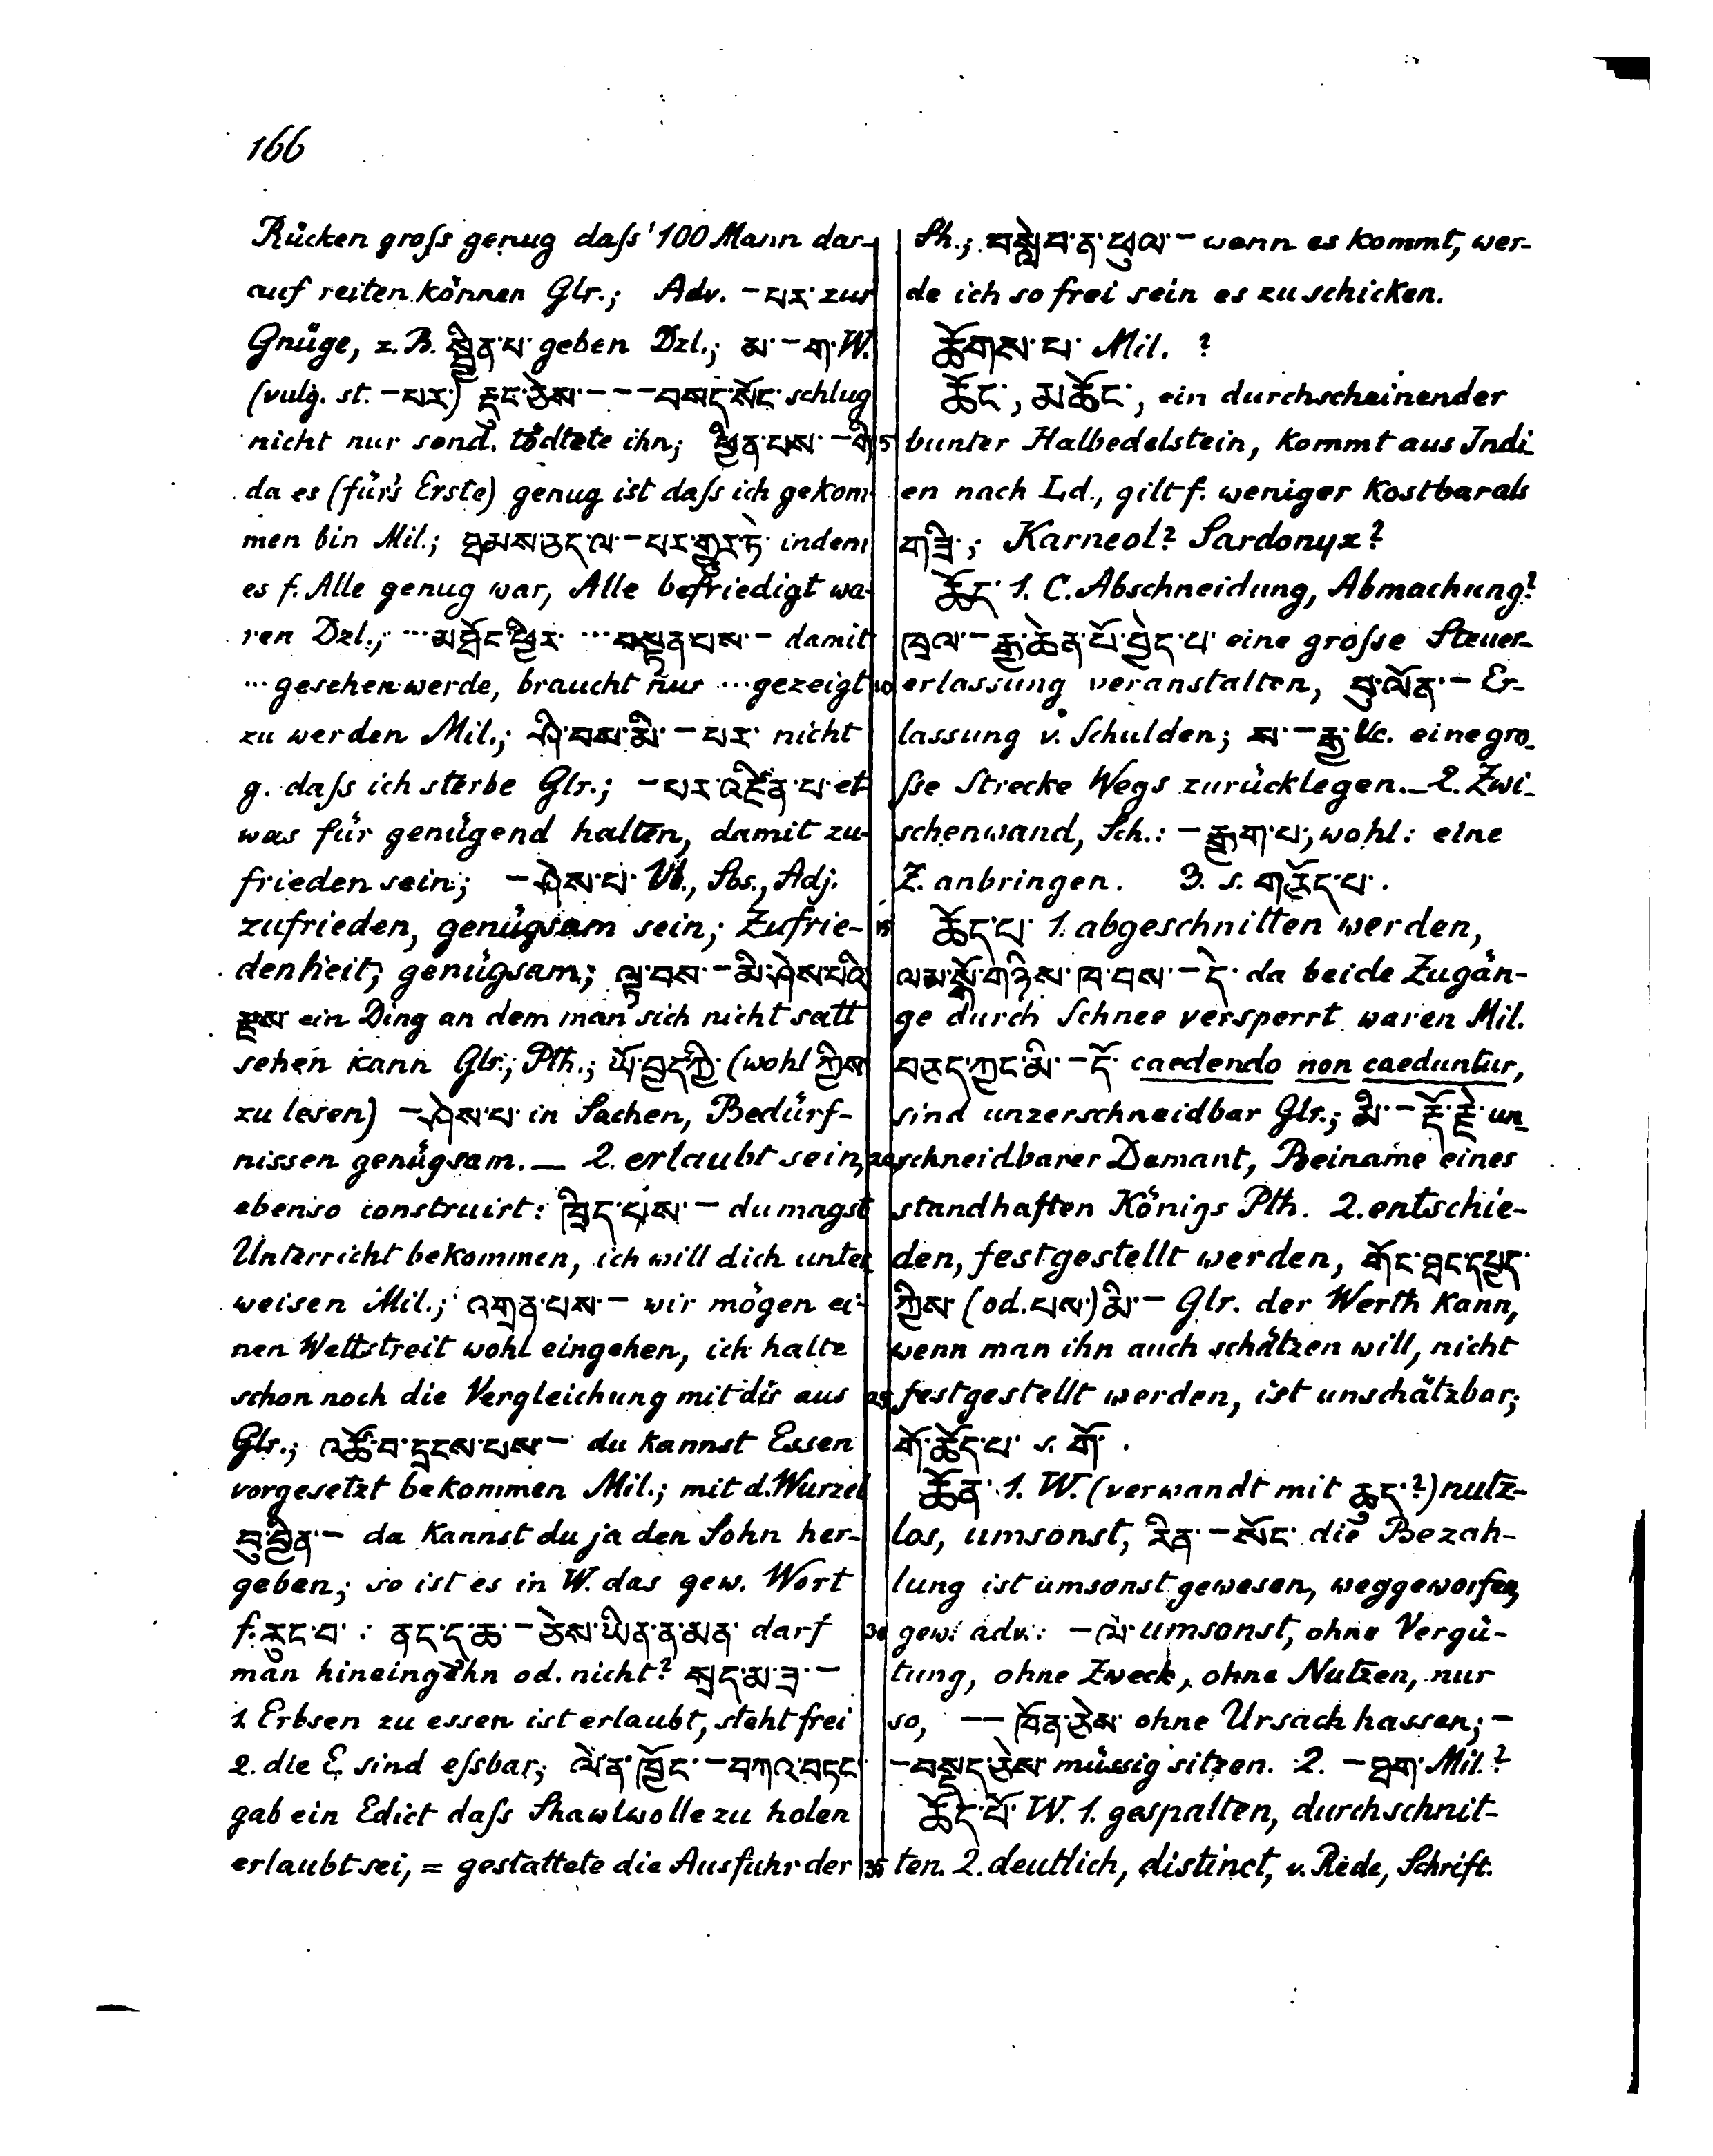 166
Rücken groſs genug daſs 100 Mann dar-
auf reiten können Glr.; Adv. – པར་ zur
Gnüge, z. B. སྦྱིན་པ་ geben Dzl.; མ་ – ག་ W.
(vulg. st. – པར་) རྡུང་ཅེས་ – – – བསད་སོང་ schlug
nicht nur sond. tödtete ihn; ཕྱིན་པས་ – གི་
da es (für's Erste) genug ist daſs ich gekom-
men bin Mil.; ཐམས་ཅད་ལ་ – པར་གྱུར་ཏེ་ indem
es f. Alle genug war, Alle befriedigt wa-
ren Dzl.; ... མཐོང་ཕྱིར་ ... བསྟན་པས་ – damit
... gesehen werde, braucht nur ... gezeigt
zu werden Mil.; ཤི་བས་མི་ – པར་ nicht
g. daſs ich sterbe Glr.; – པར་འཛིན་པ་ et-
was für genügend halten, damit zu-
frieden sein; – ཤེས་པ་ Vb., Sbs., Adj.
zufrieden, genügsam sein; Zufrie-
denheit; genügsam; ལྟ་བས་ – མི་ཤེས་པའི་
རྫས་ ein Ding an dem man sich nicht satt
sehen kann Glr.; Pth.; ཡོ་བྱད་ཀྱི་ (wohl ཀྱིས་
zu lesen) – ཤེས་པ་ in Sachen, Bedürf-
nissen genügsam. — 2. erlaubt sein,
ebenso construirt: ཁྲིད་པས་ – du magst
Unterricht bekommen, ich will dich unter-
weisen Mil.; འགྲན་པས་ – wir mögen ei-
nen Wettstreit wohl eingehen, ich halte
schon noch die Vergleichung mit dir aus
Glr.; འཚོ་བ་དྲངས་པས་ – du kannst Essen
vorgesetzt bekommen Mil.; mit d. Wurzel
བུ་བྱིན་ – da kannst du ja den Sohn her-
geben; so ist es in W. das gew. Wort
f. རུང་བ་ : ནང་ད་ཆ་ – ཅེས་ཡིན་ན་མན་ darf
man hineingehn od. nicht? སྲད་མ་ཟ་ –
1. Erbsen zu essen ist erlaubt, steht frei
2. die E. sind eſsbar; ལེན་ཁྱོང་ – བཀའ་བཏང་
gab ein Edict daſs Shawlwolle zu holen
erlaubt sei, = gestattete die Ausfuhr der
Sh.; བསླེབ་ན་ཕུལ་ – wenn es kommt, wer-
de ich so frei sein es zu schicken.
ཆོགས་པ་ Mil. ?
ཆོང་, མཆོང་, ein durchscheinender
5 bunter Halbedelstein, kommt aus Indi-
en nach Ld., gilt f. weniger kostbar als
གཟི་; Karneol? Sardonyx?
ཆོད་ 1. C. Abschneidung, Abmachung?
ཁྲལ་ – རྒྱ་ཆེན་པོ་བྱེད་པ་ eine groſse Steuer-
10 erlassung veranstalten, བུ་ལོན་ – Er-
lassung v. Schulden; ས་ – རྒྱ་ &c. eine gro-
ſse Strecke Wegs zurücklegen. — 2. Zwi-
schenwand, Sch.: – རྒྱག་པ་, wohl: eine
Z. anbringen. 3. s. གཅོད་པ་.
15 ཆོད་པ་ 1. abgeschnitten werden,
ལམ་སྒོ་གཉིས་ཁ་བས་ – དེ་ da beide Zugän-
ge durch Schnee versperrt waren Mil.
བཅད་ཀྱང་མི་ – དོ་ caedendo non caeduntur,
sind unzerschneidbar Glr.; མི་ – རྡོ་རྗེ་ un-
20 schneidbarer Demant, Beiname eines
standhaften Königs Pth. 2. entschie-
den, festgestellt werden, གོང་ཐང་དཔྱད་
ཀྱིས་ (od. པས་) མི་ – Glr. der Werth kann,
wenn man ihn auch schätzen will, nicht
25 festgestellt werden, ist unschätzbar;
གོ་ཆོད་པ་ s. གོ་.
ཆོན་ 1. W. (verwandt mit ཆུད་?) nutz-
los, umsonst, རིན་ – སོང་ die Bezah-
lung ist umsonst gewesen, weggeworfen,
30 gew. adv.: – ལེ་ umsonst, ohne Vergü-
tung, ohne Zweck, ohne Nutzen, nur
so, – – ཁོན་ཅེས་ ohne Ursach hassen; –
– བསྡད་ཅེས་ müssig sitzen. 2. – ཐག་ Mil.?
ཆོད་པོ་ W. 1. gespalten, durchschnit-
35 ten. 2. deutlich, distinct, v. Rede, Schrift.